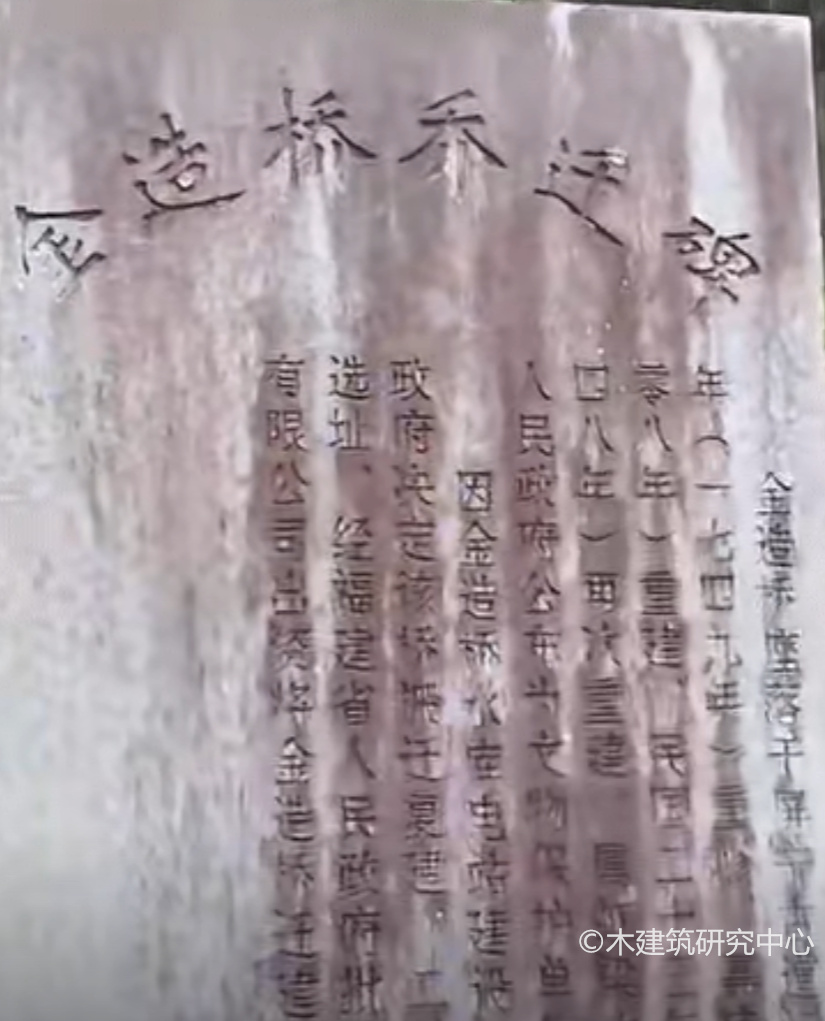 金造桥乔迁碑
金造桥座落于屏南县
年（一七四九年）重修
零八年）重建，民国三十
四八年）再次重建
人民政府公布为文物保护单
因金造桥水库电站建设
政府决定该桥搬迁复建。工
选址、经福建省人民政府批
有限公司出资将金造桥迁建
©木建筑研究中心